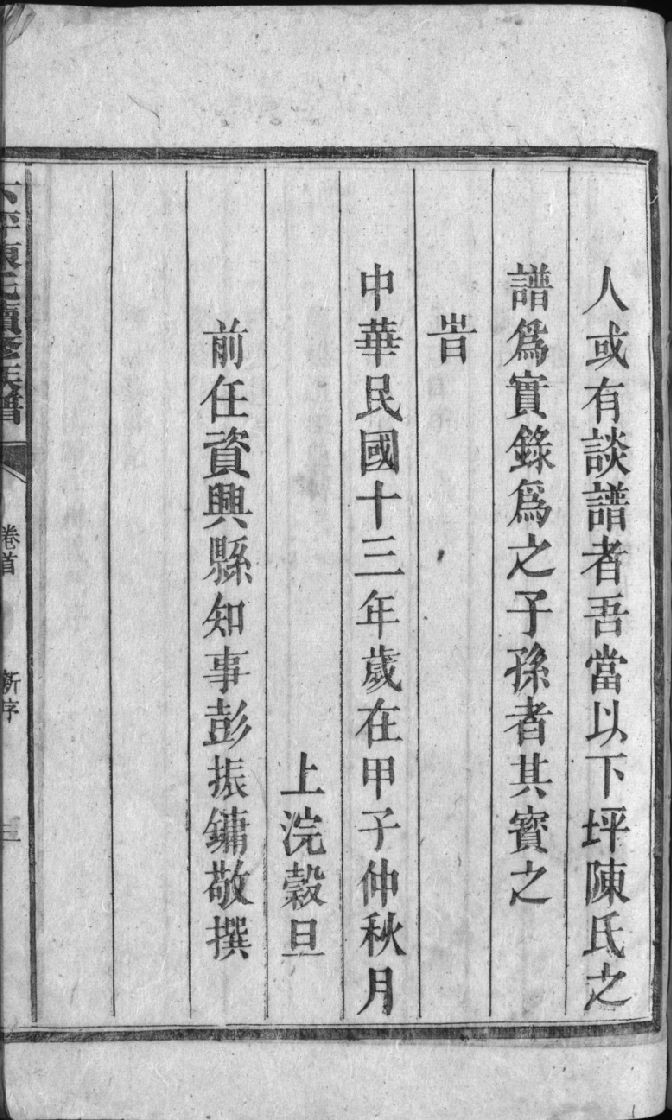 人或有談譜者吾當以下坪陳氏之
譜爲實錄爲之子孫者其寶之
旹
中華民國十三年歲在甲子仲秋月
上浣穀旦
前任資興縣知事彭振鏞敬撰
下坪陳氏續修族譜
卷首
新序
三